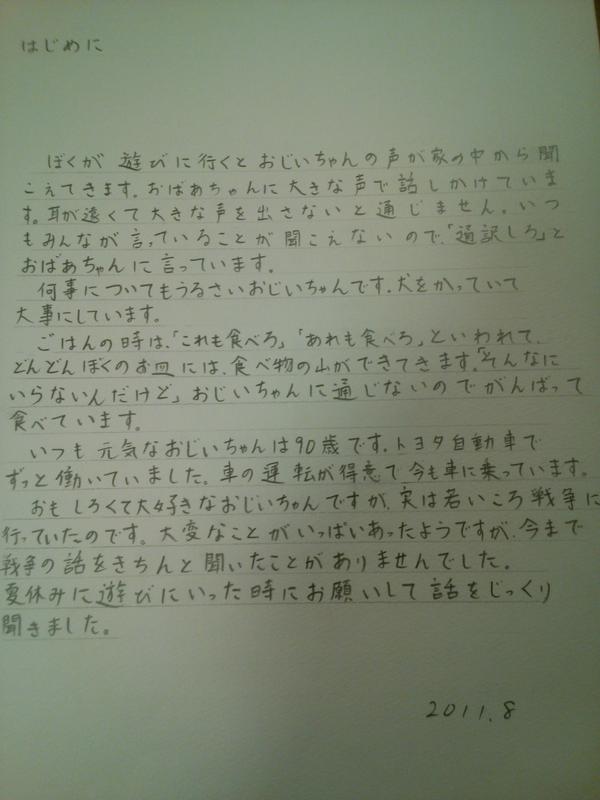 はじめに
ぼくが 遊びに行くとおじいちゃんの声が家の中から聞
こえてきます。おばあちゃんに大きな声で話しかけていま
す。耳が遠くて大きな声を出さないと通じません。いつ
もみんなが言っていることが聞こえないので、「通訳しろ」と
おばあちゃんに言っています。
何事についてもうるさいおじいちゃんです。犬をかっていて
大事にしています。
ごはんの時は、「これも食べろ」「あれも食べろ」といわれて、
どんどんぼくのお皿には、食べ物の山ができてきます。「そんなに
いらないんだけど」おじいちゃんに通じないのでがんばって
食べています。
いつも元気なおじいちゃんは90歳です。トヨタ自動車で
ずっと働いていました。車の運転が得意で今も車に乗っています。
おもしろくて大好きなおじいちゃんですが、実は若いころ戦争に
行っていたのです。大変なことがいっぱいあったようですが、今まで
戦争の話をきちんと聞いたことがありませんでした。
夏休みに遊びにいった時にお願いして話をじっくり
聞きました。
2011.8